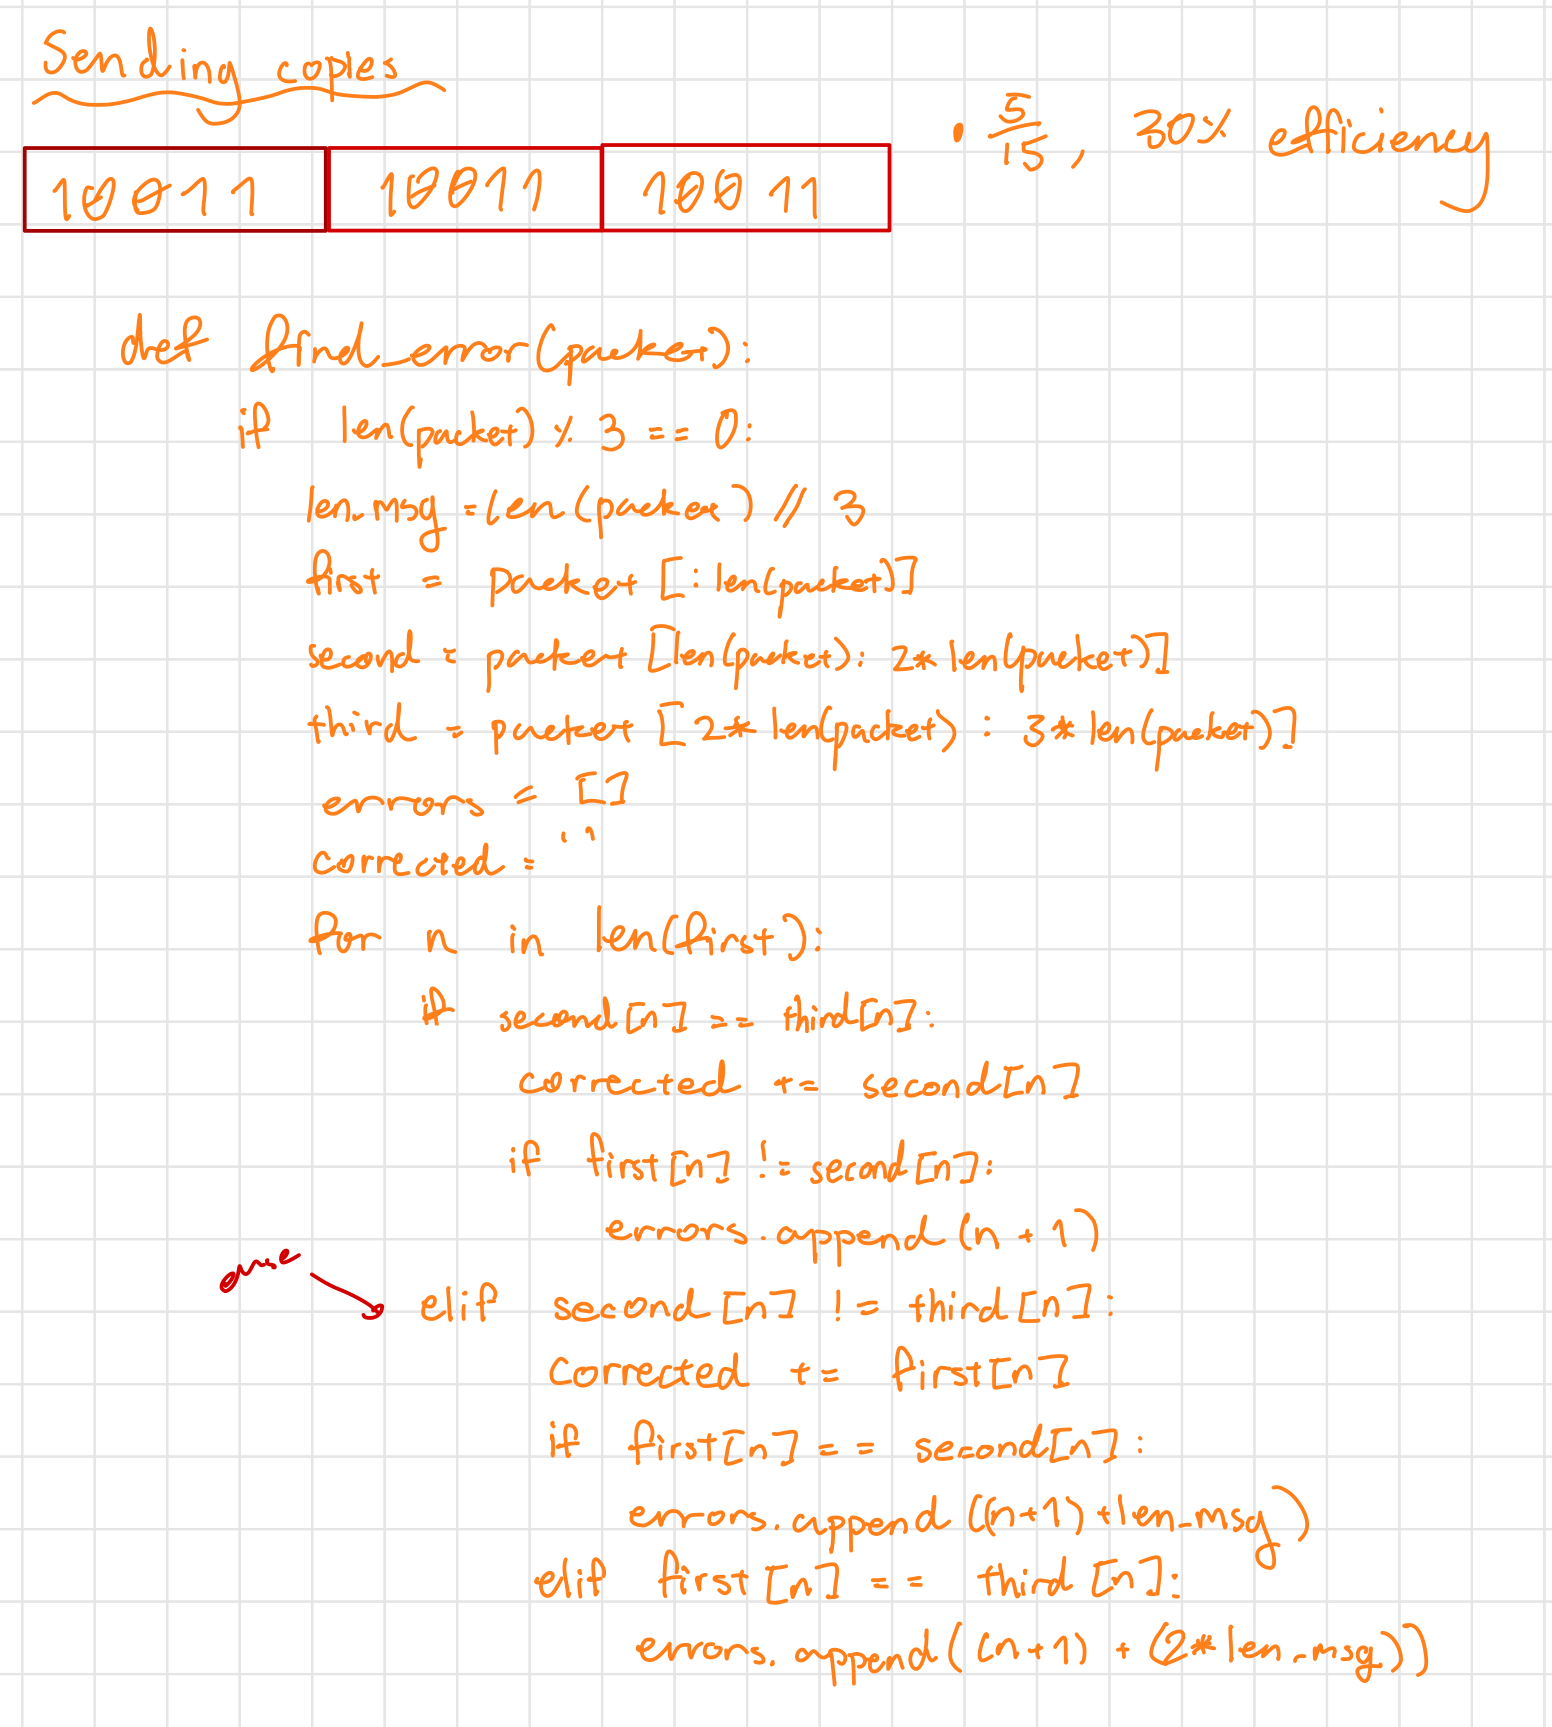 Sending copies
• 5/15, 30% efficiency
10011 10011 10011
def find_error(packet):
if len(packet) % 3 == 0:
len_msg = len(packet) // 3
first = packet [: len(packet)]
second = packet [len(packet): 2* len(packet)]
third = packet [2* len(packet) : 3* len(packet)]
errors = []
corrected = ''
for n in len(first):
if second[n] == third[n]:
corrected += second[n]
if first[n] != second[n]:
errors.append(n + 1)
elif second[n] != third[n]:
corrected += first[n]
if first[n] == second[n]:
errors.append((n+1) + len_msg)
elif first[n] == third[n]:
errors.append((n+1) + (2*len_msg))